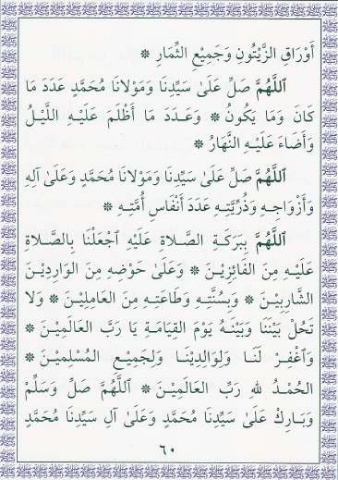 أَوْرَاقِ الزَّيْتُونِ وَجَمِيْعِ الثِّمَارِ ❊
اَللَّهُمَّ صَلِّ عَلَىٰ سَيِّدِنَا وَمَوْلَانَا مُحَمَّدٍ عَدَدَ مَا
كَانَ وَمَا يَكُونُ ❊ وَعَدَدَ مَا أَظْلَمَ عَلَيْهِ اللَّيْلُ
وَأَضَاءَ عَلَيْهِ النَّهَارُ ❊
اَللَّهُمَّ صَلِّ عَلَىٰ سَيِّدِنَا وَمَوْلَانَا مُحَمَّدٍ وَعَلَىٰ آلِهِ
وَأَزْوَاجِهِ وَذُرِّيَّتِهِ عَدَدَ أَنْفَاسِ أُمَّتِهِ ❊
اَللَّهُمَّ بِبَرَكَةِ الصَّلَاةِ عَلَيْهِ اجْعَلْنَا بِالصَّلَاةِ
عَلَيْهِ مِنَ الْفَائِزِيْنَ ❊ وَعَلَىٰ حَوْضِهِ مِنَ الْوَارِدِيْنَ
الشَّارِبِيْنَ ❊ وَبِسُنَّتِهِ وَطَاعَتِهِ مِنَ الْعَامِلِيْنَ ❊ وَلَا
تَحُلْ بَيْنَنَا وَبَيْنَهُ يَوْمَ الْقِيَامَةِ يَا رَبَّ الْعَالَمِيْنَ ❊
وَاغْفِرْ لَنَا وَلِوَالِدِيْنَا وَلِجَمِيعِ الْمُسْلِمِيْنَ ❊
الْحَمْدُ لِلهِ رَبِّ الْعَالَمِيْنَ ❊ اَللَّهُمَّ صَلِّ وَسَلِّمْ
وَبَارِكْ عَلَىٰ سَيِّدِنَا مُحَمَّدٍ وَعَلَىٰ آلِ سَيِّدِنَا مُحَمَّدٍ
٦٠